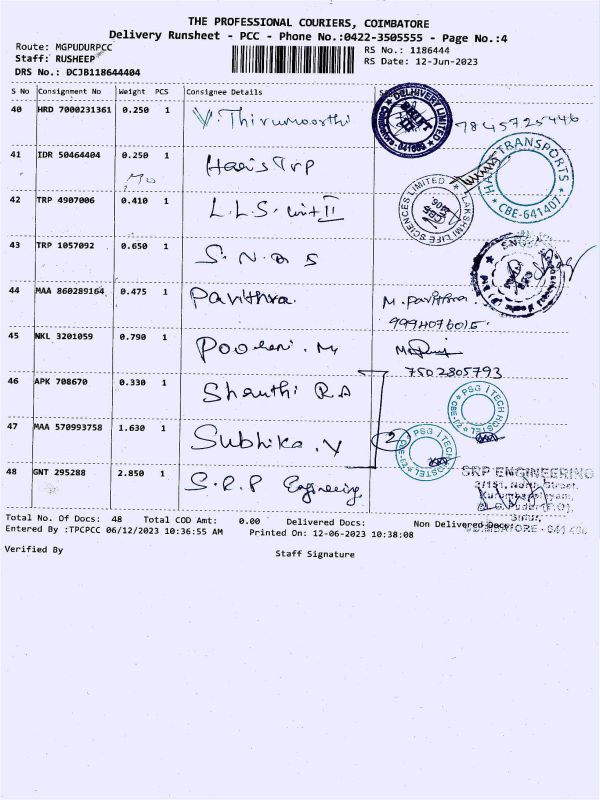 THE PROFESSIONAL COURIERS, COIMBATORE
Delivery Runsheet - PCC - Phone No.:0422-3505555 - Page No.:4
Route: MGPUDURPCC
RS No.: 1186444
Staff: RUSHEEP
RS Date: 12-Jun-2023
DRS No.: DCJB118644404
S No Consignment No Weight PCS Consignee Details
40 HRD 7000231361 0.250 1 V. Thirumoorthi DELHIVERY LIMITED 7845725446
41 IDR 50464404 0.250 1 Haris Trp TRANSPORTS CBE-641407
42 TRP 4907006 0.410 1 L.L.S. Unit II LAKSHMI LIFE SCIENCES LIMITED
43 TRP 1057092 0.650 1 S.N.Q S
44 MAA 860289164 0.475 1 Pavithra. M. Pavithra
9994076015.
45 NKL 3201059 0.790 1 Poorani. M
7502805793
46 APK 708670 0.330 1 Shanthi R.A PSG iTECH HOSTEL
47 MAA 570993758 1.630 1 Subhika. V 2 PSG iTECH HOSTEL
48 GNT 295288 2.850 1 S.R.P Engineering SRP ENGINEERING
2/151, North Street,
Total No. Of Docs: 48 Total COD Amt: 0.00 Delivered Docs: Non Delivered Docs:
Entered By :TPCPCC 06/12/2023 10:36:55 AM Printed On: 12-06-2023 10:38:08
Verified By Staff Signature